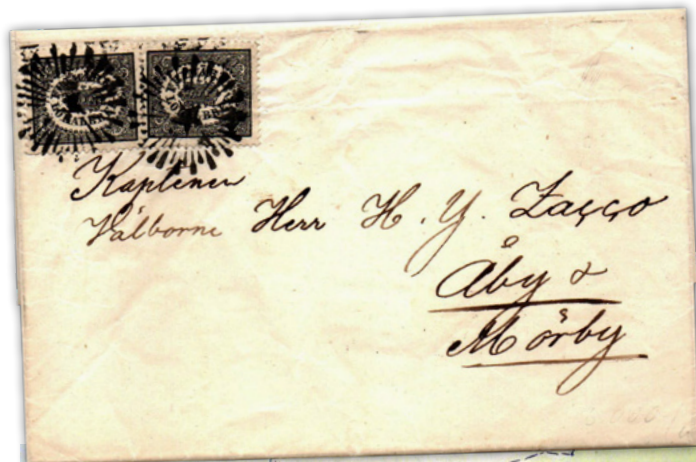 Kaptenen
Välborne Herr H. Y. Zacco
Åby &
Mörby